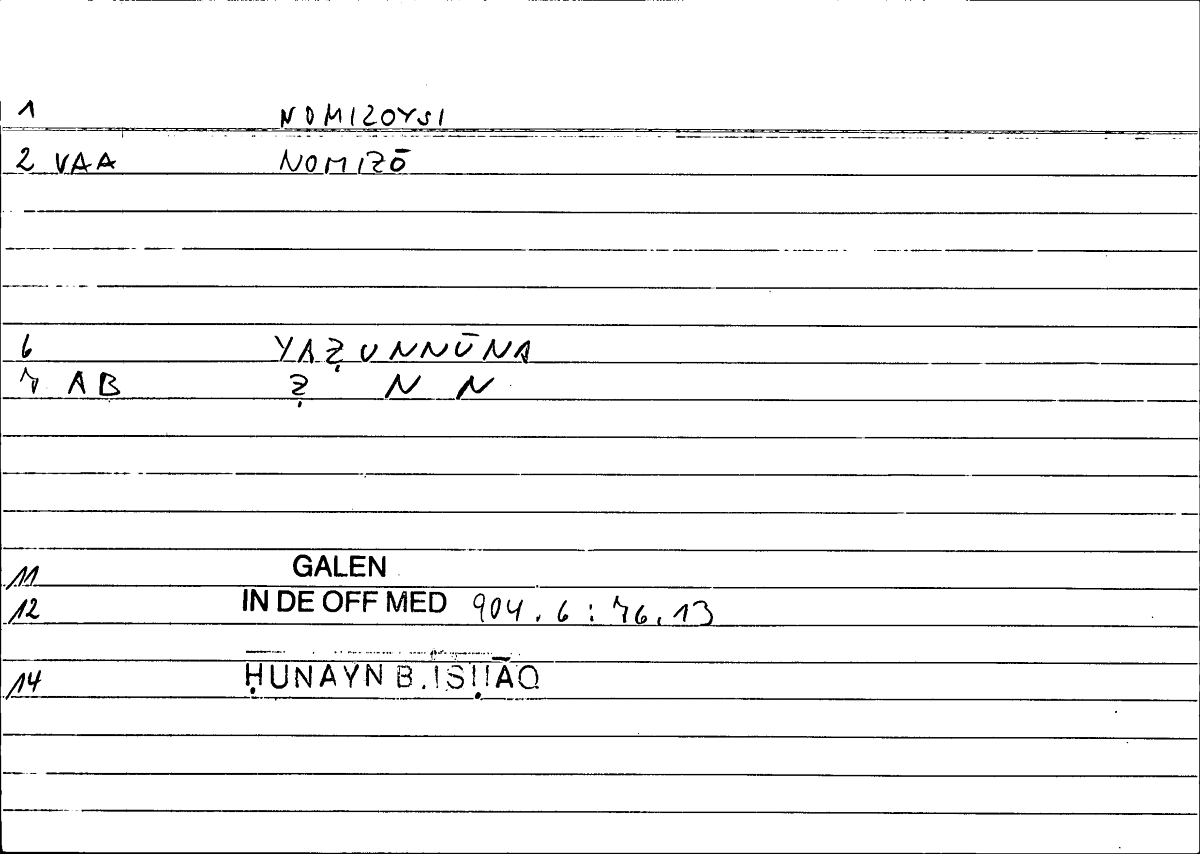 1 NOMIZOYSI
2 VAA NOMIZŌ
6 YAẒUNNŪNA
7 AB Ẓ N N
11 GALEN
12 IN DE OFF MED 904.6:76.13
14 ḤUNAYN B. ISḤĀQ